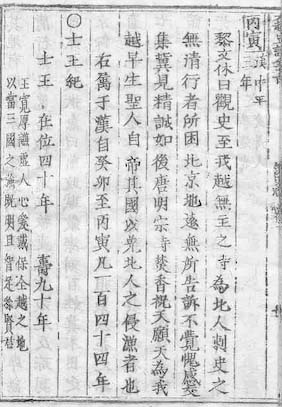 丙寅漢中平三年
黎文休曰觀史至我越無主之寺為北人刺史之
無清行者所困北京地遠無所告訴不覺愧感爰
集冀見精誠如後唐明宗寺焚香祝天願天為我
越早生聖人自帝其國以免北人之侵漁者也
右屬于漢自癸卯至丙寅凡一百四十四年
○士王紀
士王 在位四十年 壽九十年
王寬厚謙虛人心愛戴保全越之地
以當三國之強既明且智足稱賢君